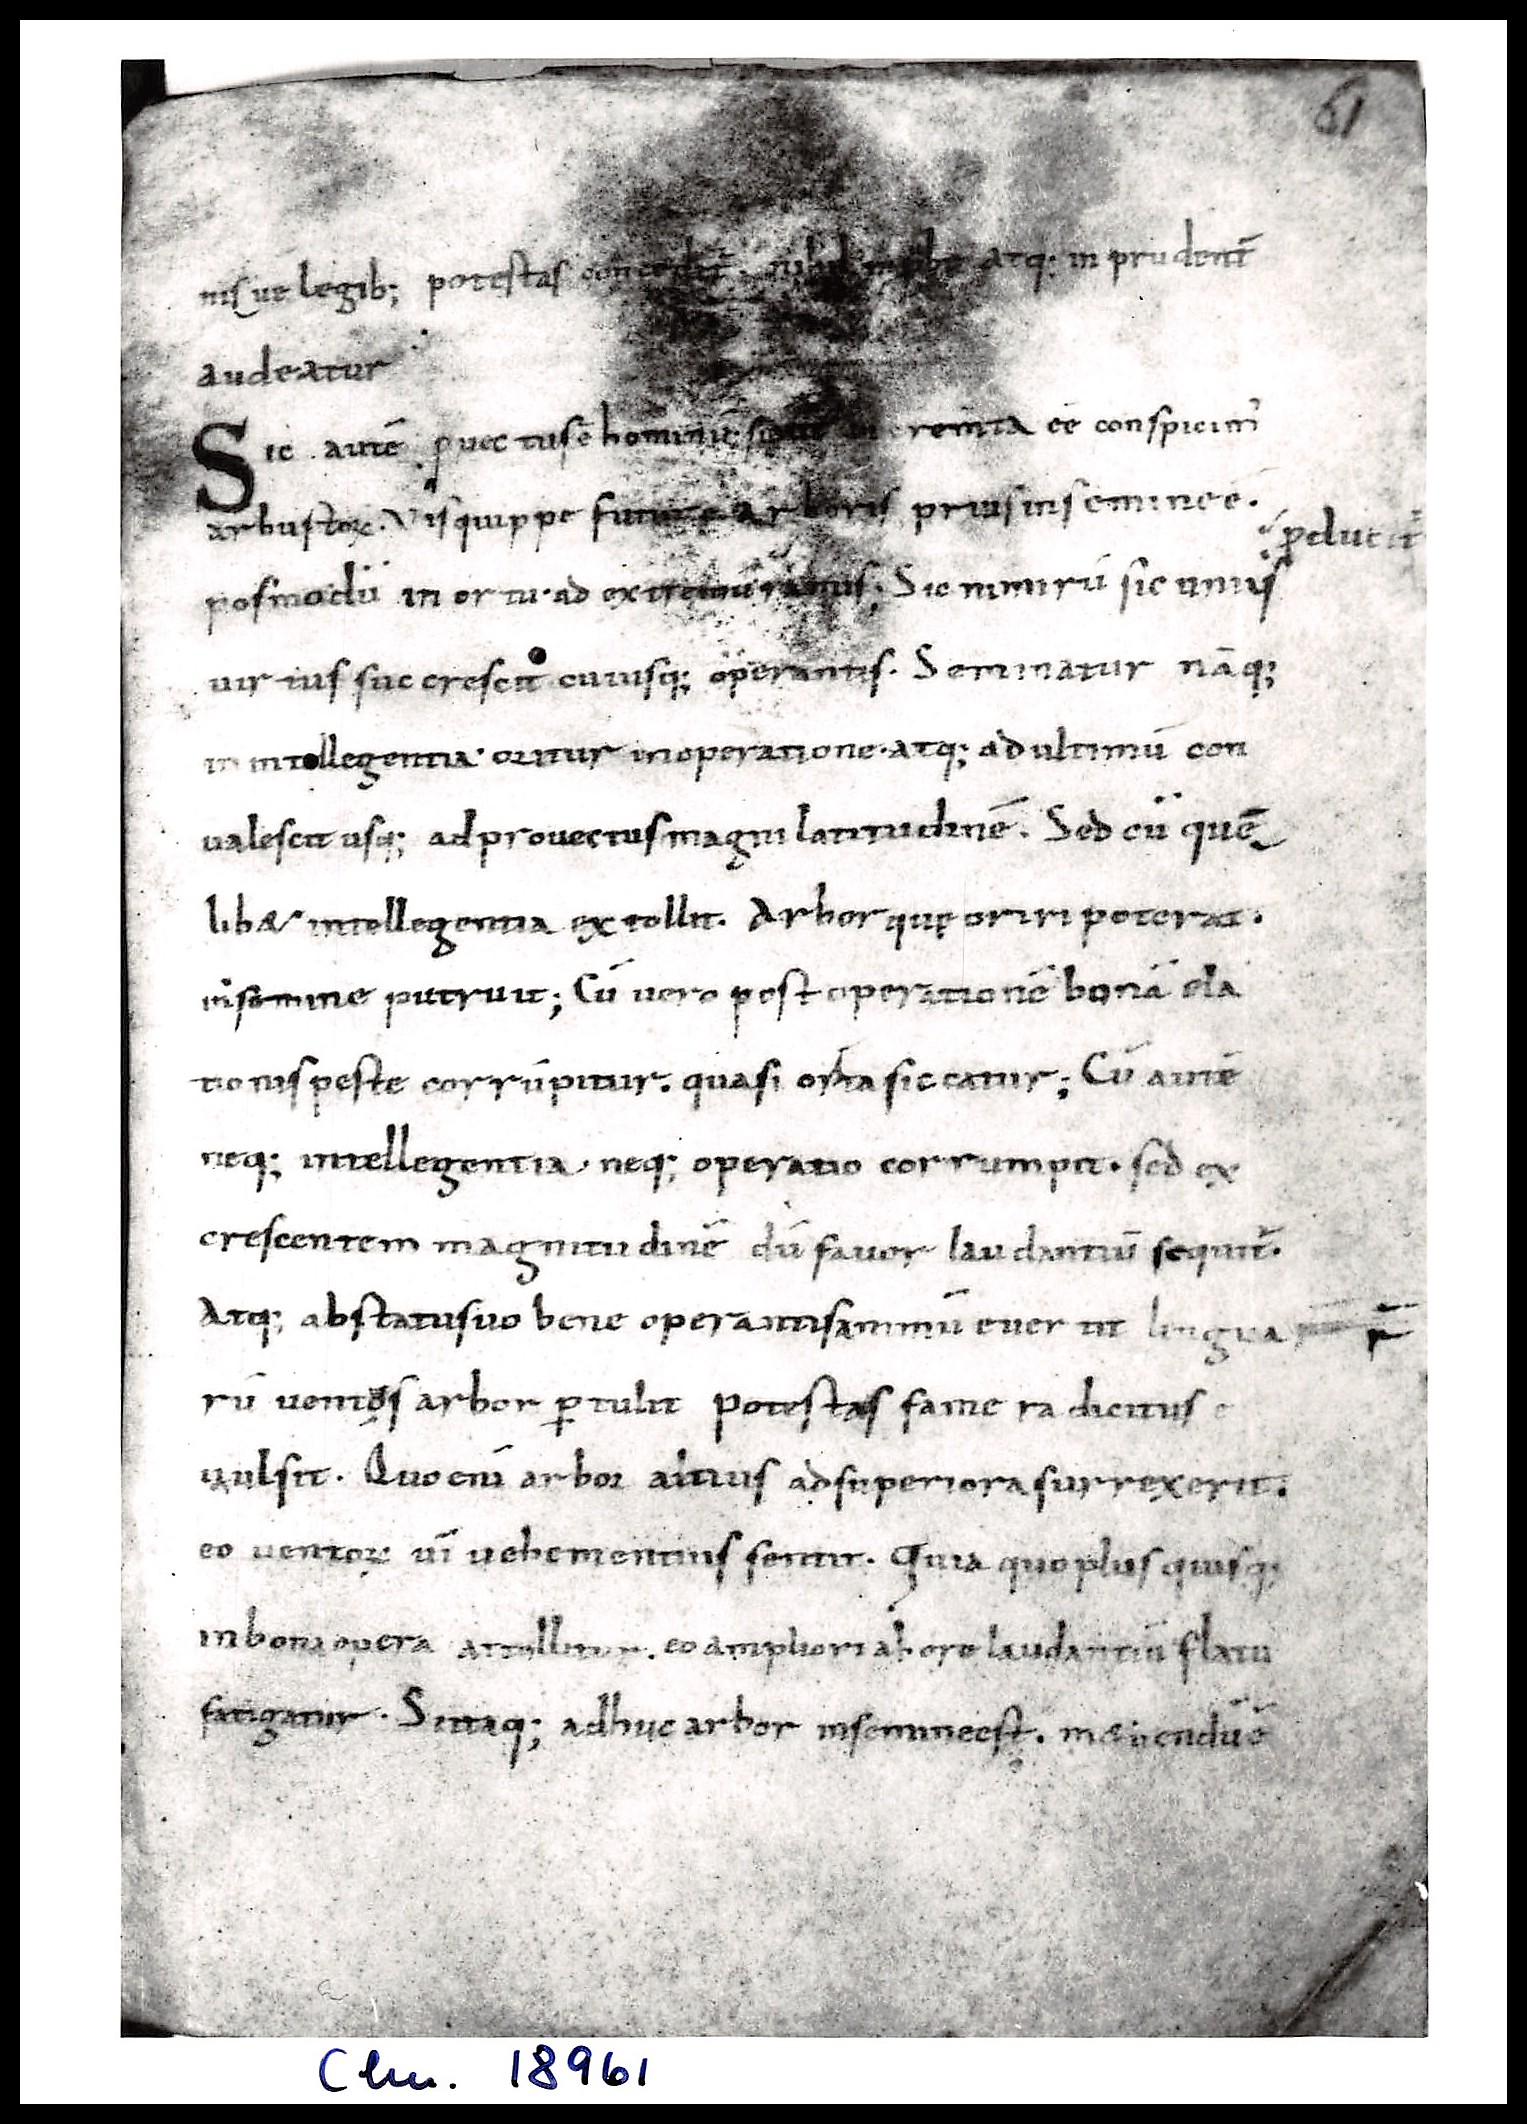 61
nisue legib; potestas conceditr̄. nihil atq; in prudent̄
audeatur
Sic autē ꝓuectus ē hominū; sicut incremta eē conspicim᾽
arbustoꝝ. Vis quippe future arboris prius in semine ē.
ꝓducit᷑
posmodū in ortu. ad extremū ramus; Sic nimirū sic unius
uirtus succrescit cuiusq; operantis. Seminatur nāq;
in intellegentia. oritur in operatione. atq; ad ultimū con
ualescit usq; ad prouectus magni latitudinē. Sed cū quē
libæ intellegentia extollit. Arbor quę oriri poterat.
in semine putruit; Cū uero post operationē bonā ela
tionis peste corrūpitur. quasi orta siccatur; Cū autē
neq; intellegentia, neq; operatio corrumpit. sed ex
crescentem magnitudinē dū fauor laudantiū sequit᷑.
Atq; ab statu suo bene operantis animū euertit lingua
rū uentos arbor ꝑtulit potestas fame radicitus e
uulsit. Quo enī arbor altius ad superiora surrexerit.
eo uentoꝝ uī uehementius sentit. Quia quo plus quisq;
in bona opera attollitur. eo ampliori ab ore laudantiū flatu
fatigatur. Si itaq; adhuc arbor in semine est. mæuendū ē
Clm. 18961